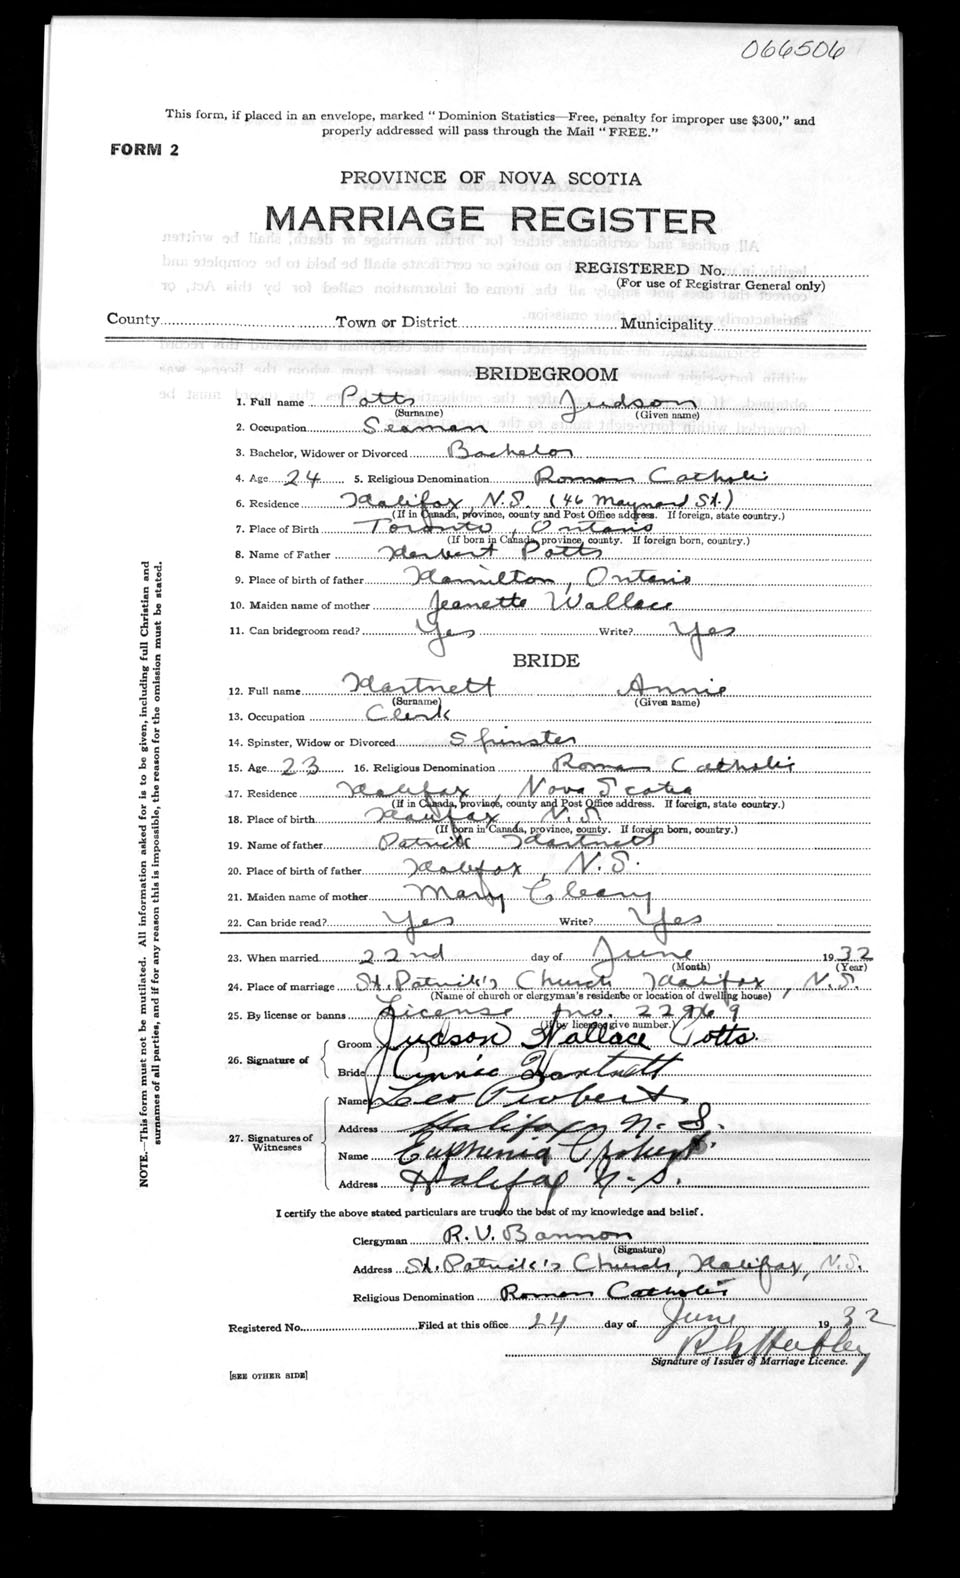 066506
This form, if placed in an envelope, marked "Dominion Statistics—Free, penalty for improper use $300," and
properly addressed will pass through the Mail "FREE."
FORM 2
PROVINCE OF NOVA SCOTIA
MARRIAGE REGISTER
REGISTERED No.
(For use of Registrar General only)
County Town or District Municipality
BRIDEGROOM
1. Full name Potts Judson
(Surname) (Given name)
2. Occupation Seaman
3. Bachelor, Widower or Divorced Bachelor
4. Age 24 5. Religious Denomination Roman Catholic
6. Residence Halifax N.S. (46 Maynard St.)
(If in Canada, province, county and Post Office address. If foreign, state country.)
7. Place of Birth Toronto, Ontario
(If born in Canada, province, county. If foreign born, country.)
8. Name of Father Herbert Potts
9. Place of birth of father Hamilton, Ontario
10. Maiden name of mother Jeanette Wallace
11. Can bridegroom read? Yes Write? Yes
BRIDE
12. Full name Hartnett Annie
(Surname) (Given name)
13. Occupation Clerk
14. Spinster, Widow or Divorced Spinster
15. Age 23 16. Religious Denomination Roman Catholic
17. Residence Halifax, Nova Scotia
(If in Canada, province, county and Post Office address. If foreign, state country.)
18. Place of birth Halifax, N.S.
(If born in Canada, province, county. If foreign born, country.)
19. Name of father Patrick Hartnett
20. Place of birth of father Halifax, N.S.
21. Maiden name of mother Mary Cleary
22. Can bride read? Yes Write? Yes
23. When married 22nd day of June 1932
(Month) (Year)
24. Place of marriage St. Patrick's Church Halifax, N.S.
(Name of church or clergyman's residence or location of dwelling house)
25. By license or banns License no.
(If by license give number.)
26. Signature of
Groom Judson Wallace Potts.
Bride Annie Hartnett
27. Signatures of
Witnesses
Name Leo
Address Halifax N.S.
Name Euphemia
Address Halifax N.S.
I certify the above stated particulars are true to the best of my knowledge and belief.
Clergyman R.V. Bannon
(Signature)
Address St. Patrick's Church, Halifax, N.S.
Religious Denomination Roman Catholic
Registered No. Filed at this office 24 day of June 1932
Signature of Issuer of Marriage Licence.
[SEE OTHER SIDE]
NOTE.—This form must not be mutilated. All information asked for is to be given, including full Christian and
surnames of all parties, and if for any reason this is impossible, the reason for the omission must be stated.